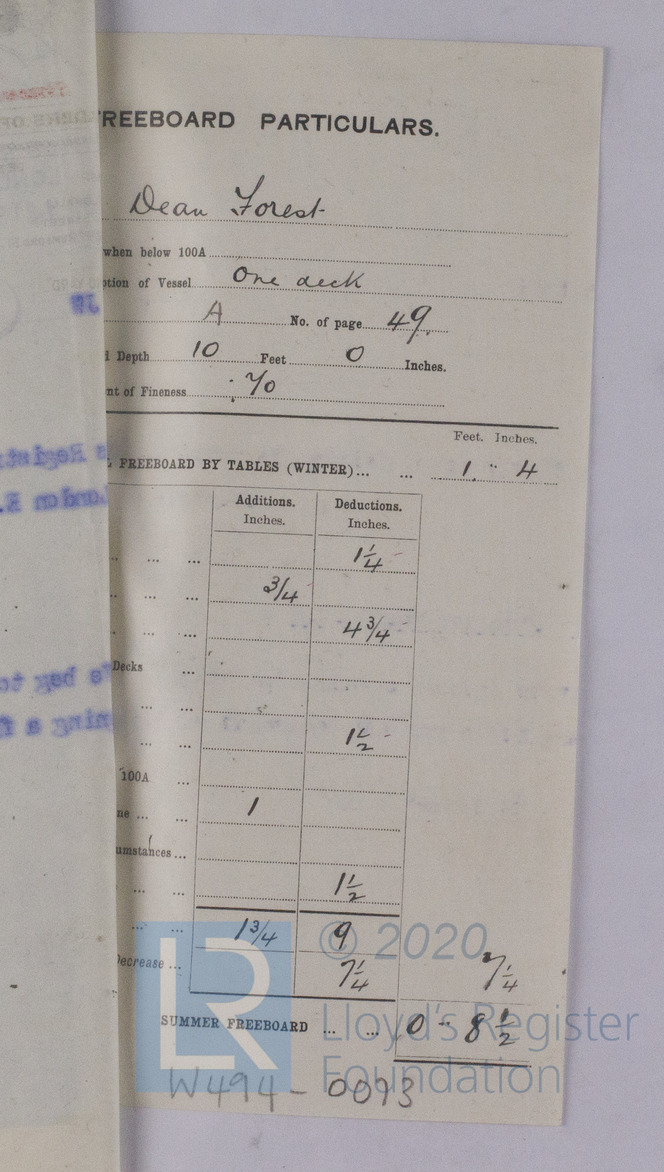 FREEBOARD PARTICULARS.
Dean Forest
when below 100A
ption of Vessel One deck
A No. of page 49
Depth 10 Feet 0 Inches.
nt of Fineness ·70
Feet. Inches.
FREEBOARD BY TABLES (WINTER)... ... 1 " 4
Additions. Deductions.
Inches. Inches.
... ... 1 1/4
... ... 3/4
... ... 4 3/4
Decks ...
... ...
... ... 1 1/2
100A ...
ne ... ... 1
umstances ...
... ... 1 1/2
... ... 1 3/4 9
Decrease ... 7 1/4 7 1/4
SUMMER FREEBOARD ... ... 0 - 8 1/2
W494-0093
© 2020
LR
Lloyd's Register
Foundation